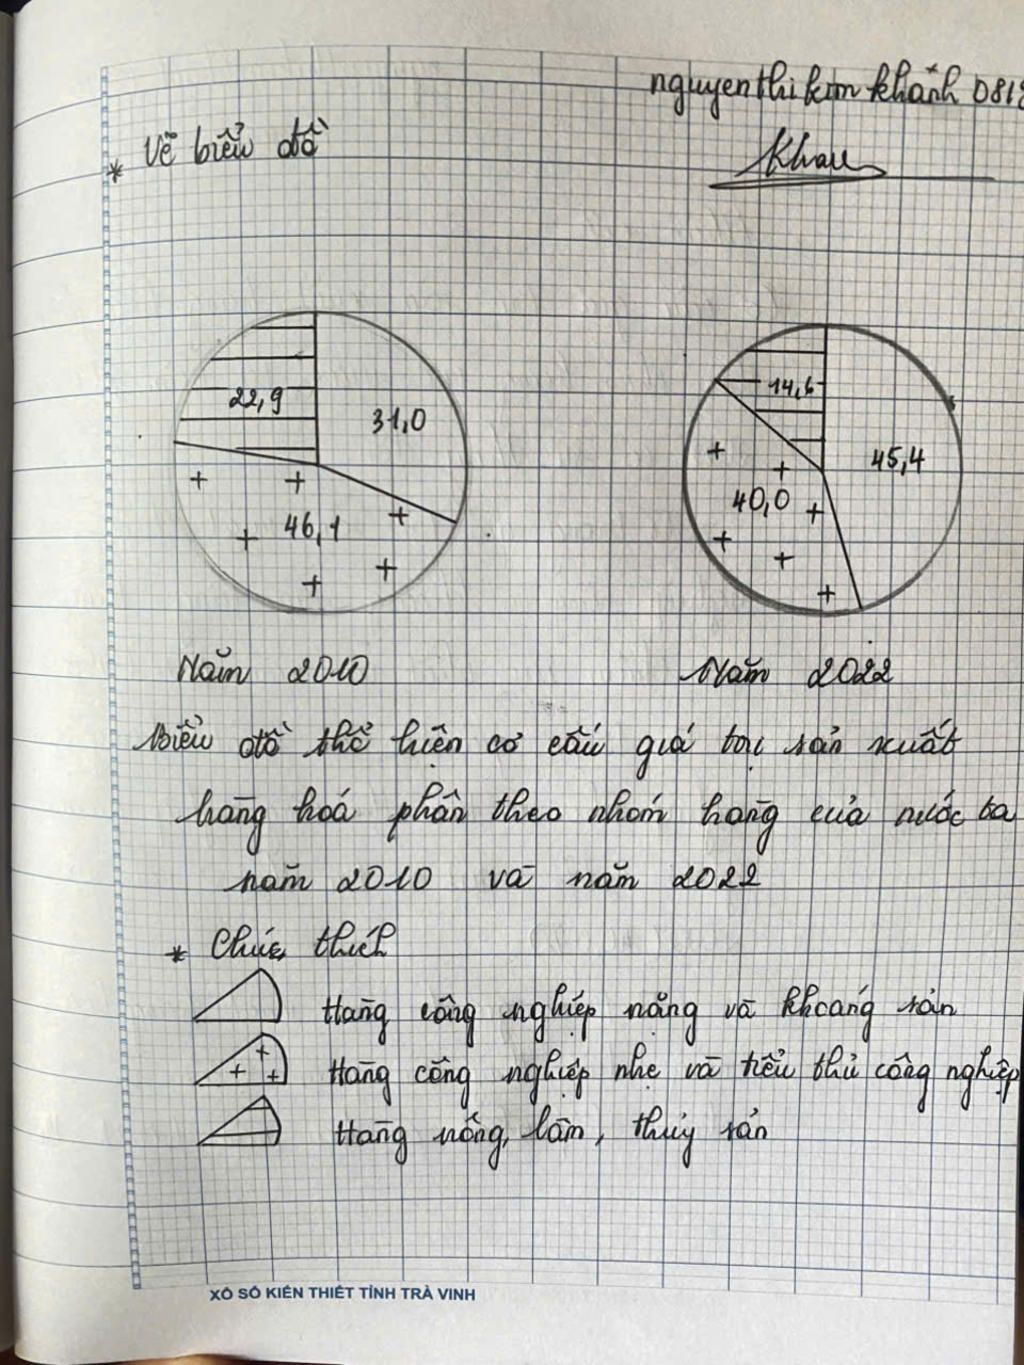 nguyen thi kim khánh 0818
* Vẽ biểu đồ
Khanh
22,9
31,0
46,1
14,6
45,4
40,0
Năm 2010
Năm 2022
Biểu đồ thể hiện cơ cấu giá trị sản xuất
hàng hoá phân theo nhóm hàng của nước ta
năm 2010 và năm 2022
* Chú thích
Hàng công nghiệp nặng và khoáng sản
Hàng công nghiệp nhẹ và tiểu thủ công nghiệp
Hàng nông, lâm, thủy sản
XỔ SỐ KIẾN THIẾT TỈNH TRÀ VINH